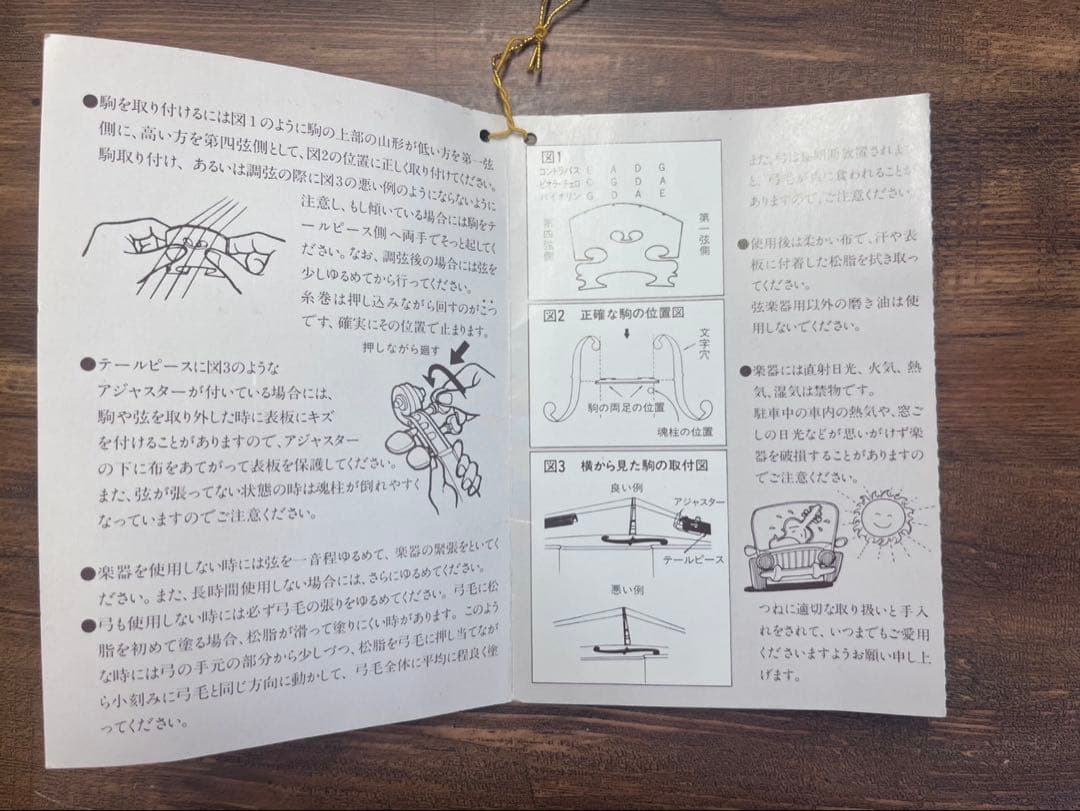 ●駒を取り付けるには図1のように駒の上部の山形が低い方を第一弦
側に、高い方を第四弦側として、図2の位置に正しく取り付けてください。
駒取り付け、あるいは調弦の際に図3の悪い例のようにならないように
注意し、もし傾いている場合には駒をテ
ールピース側へ両手でそっと起してく
ださい。なお、調弦後の場合には弦を
少しゆるめてから行ってください。
糸巻は押し込みながら回すのがこつ
です、確実にその位置で止まります。
押しながら廻す
●テールピースに図3のような
アジャスターが付いている場合には、
駒や弦を取り外した時に表板にキズ
を付けることがありますので、アジャスター
の下に布をあてがって表板を保護してください。
また、弦が張ってない状態の時は魂柱が倒れやすく
なっていますのでご注意ください。
●楽器を使用しない時には弦を一音程ゆるめて、楽器の緊張をといてく
ださい。また、長時間使用しない場合には、さらにゆるめてください。
●弓も使用しない時には必ず弓毛の張りをゆるめてください。弓毛に松
脂を初めて塗る場合、松脂が滑って塗りにくい時があります。このよう
な時には弓の手元の部分から少しづつ、松脂を弓毛に押し当てなが
ら小刻みに弓毛と同じ方向に動かして、弓毛全体に平均に程良く塗
ってください。
図1
コントラバス E A D G
ビオラ・チェロ C G D A
バイオリン G D A E
第四弦側
第一弦側
図2 正確な駒の位置図
文字穴
駒の両足の位置
魂柱の位置
図3 横から見た駒の取付図
良い例
アジャスター
テールピース
悪い例
また、弓は長期間放置されま
すと、弓毛が虫に食われることが
ありますので、ご注意ください
●使用後は柔かい布で、汗や表
板に付着した松脂を拭き取っ
てください。
弦楽器用以外の磨き油は使
用しないでください。
●楽器には直射日光、火気、熱
気、湿気は禁物です。
駐車中の車内の熱気や、窓ご
しの日光などが思いがけず楽
器を破損することがありますの
でご注意ください。
つねに適切な取り扱いと手入
れをされて、いつまでもご愛用
くださいますようお願い申し上
げます。